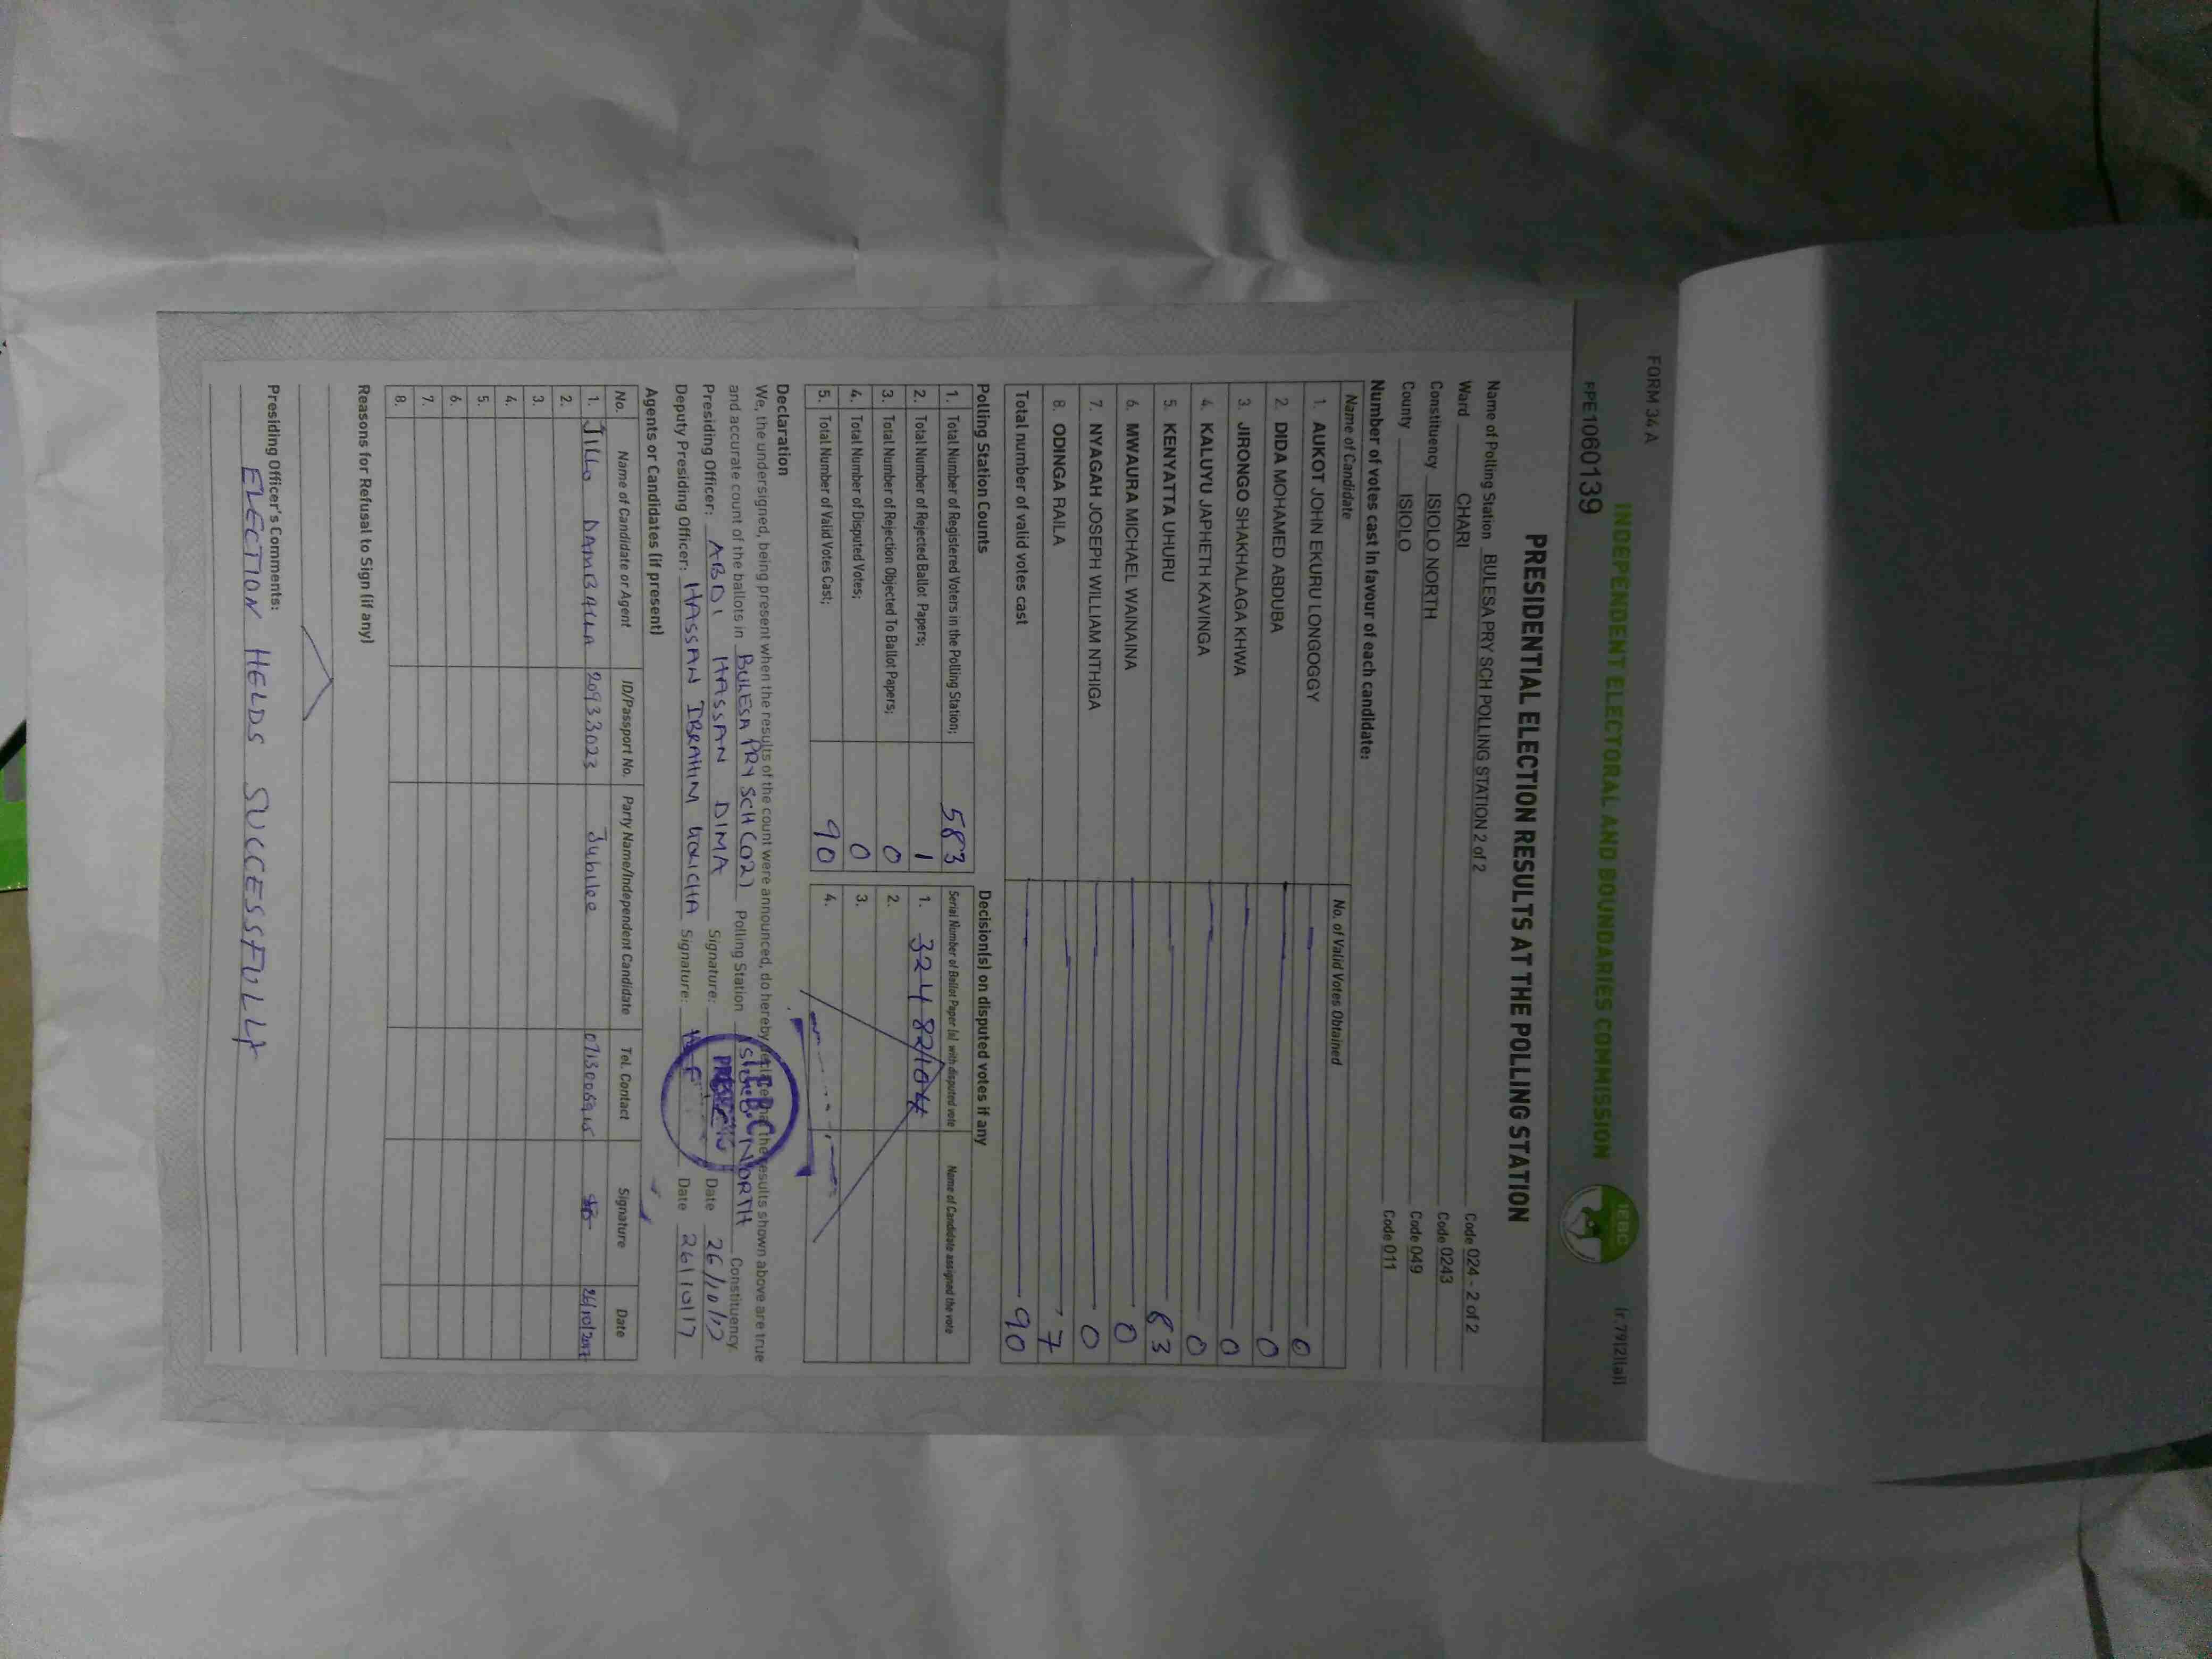 FORM 34 A
(r.79(2)(a))
INDEPENDENT ELECTORAL AND BOUNDARIES COMMISSION
IEBC
PPE1060139
PRESIDENTIAL ELECTION RESULTS AT THE POLLING STATION
Name of Polling Station BULESA PRY SCH POLLING STATION 2 of 2 Code 024 - 2 of 2
Ward CHARI Code 0243
Constituency ISIOLO NORTH Code 049
County ISIOLO Code 011
Number of votes cast in favour of each candidate:
Name of Candidate No. of Valid Votes Obtained
1. AUKOT JOHN EKURU LONGOGGY 0
2. DIDA MOHAMED ABDUBA 0
3. JIRONGO SHAKHALAGA KHWA 0
4. KALUYU JAPHETH KAVINGA 0
5. KENYATTA UHURU 83
6. MWAURA MICHAEL WAINAINA 0
7. NYAGAH JOSEPH WILLIAM NTHIGA 0
8. ODINGA RAILA 7
Total number of valid votes cast 90
Polling Station Counts Decision(s) on disputed votes if any
1. Total Number of Registered Voters in the Polling Station; 583 Serial Number of Ballot Paper (s) with disputed vote Name of Candidate assigned the vote
2. Total Number of Rejected Ballot Papers; 1 1.
3. Total Number of Rejection Objected To Ballot Papers; 0 2.
4. Total Number of Disputed Votes; 0 3.
5. Total Number of Valid Votes Cast; 90 4.
Declaration
We, the undersigned, being present when the results of the count were announced, do hereby declare that the results shown above are true
and accurate count of the ballots in BULESA PRY SCH (02) Polling Station ISIOLO NORTH Constituency
Presiding Officer: ABDI HASSAN DIMA Signature: Date 26/10/17
Deputy Presiding Officer: HASSAN IBRAHIM Signature: Date 26/10/17
I.E.B.C
PRESIDING
Agents or Candidates (if present)
No. Name of Candidate or Agent ID/Passport No. Party Name/Independent Candidate Tel. Contact Signature Date
1. JILLO 20933023 Jubilee 26/10/2017
2.
3.
4.
5.
6.
7.
8.
Reasons for Refusal to Sign (if any)
Presiding Officer's Comments:
ELECTION HELDS SUCCESSFULLY